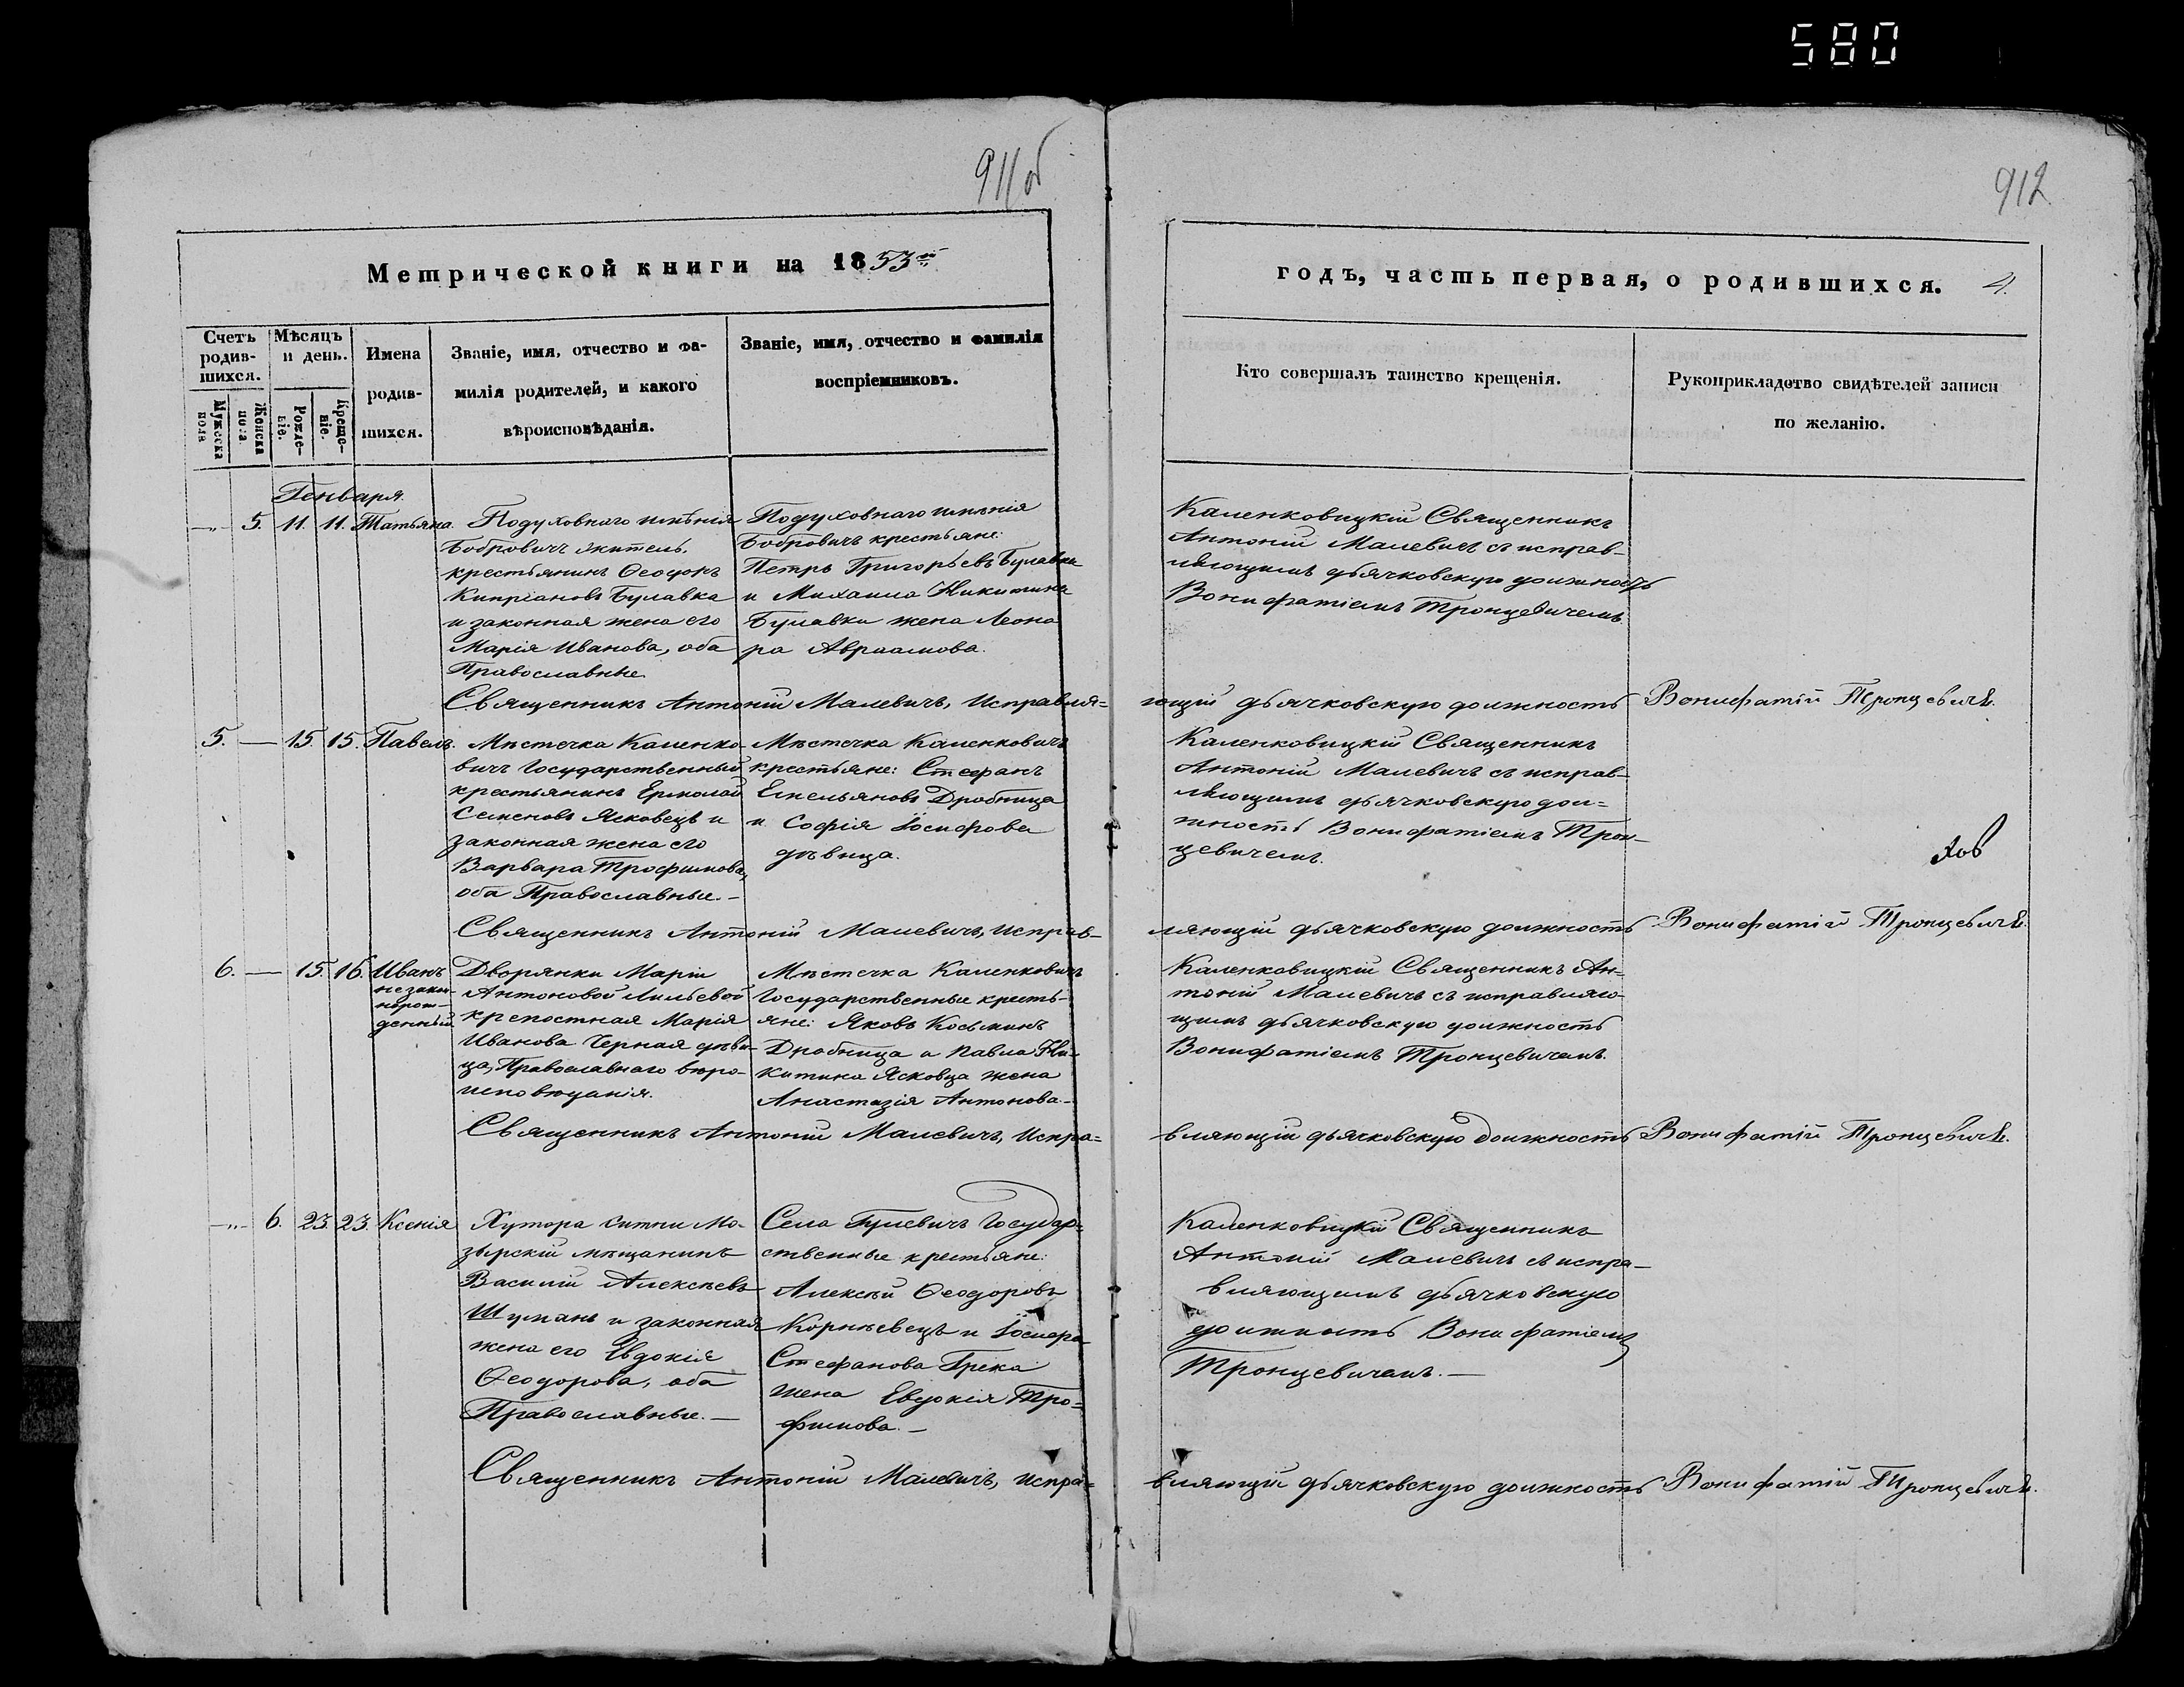 580
911об
912
Метрической книги на 1853й
годъ, часть первая, о родившихся. 4.
Счетъ родившихся.
Мужеска пола
Женска пола.
Мѣсяцъ и день.
Рождение.
Крещение.
Имена родившихся.
Званіе, имя, отчество и фамилія родителей, и какого вѣроисповѣданія.
Званіе, имя, отчество и фамилія воспріемниковъ.
Кто совершалъ таинство крещенія.
Рукоприкладство свидѣтелей записи по желанію.
Генваря.
—„— 5. 11. 11. Татьяна.
Подуховнаго имѣнія
Бобровичъ житель.
крестьянинъ Ѳеодоръ
Кипріановъ Булавка
и законная жена его
Марія Иванова, оба
Православные.
Подуховнаго имѣнія
Бобровичъ крестьяне:
Петръ Григорьевъ Булавка
и Михаила Никитина
Булавки жена Леоно
ра Авраамова.
Каленковицкій Священникъ
Антоній Малевичъ съ исправ–
ляющимъ дьячковскую должность
Вонифатіемъ Тронцевичемъ.
Священникъ Антоній Малевичъ, Исправля=
ющій дьячковскую должность Вонифатій Тронцевичъ.
5. — 15. 15. Павелъ.
Мѣстечка Каленко–
вичъ Государственный
крестьянинъ Ермолай
Семеновъ Ясковецъ и
законная жена его
Варвара Трофимова,
оба Православные. –
Мѣстечка Каленковичъ
крестьяне: Стефанъ
Емельяновъ Дробница
и Софія Іосифова
дѣвица.
Каленковицкій Священникъ
Антоній Малевичъ съ исправ–
ляющимъ дьячковскую дол=
жность Вонифатіемъ Трон–
цевичемъ.
Священникъ Антоній Малевичъ, Исправ–
ляющій дьячковскую должность Вонифатій Тронцевичъ.
6. — 15. 16. Иванъ
незакон–
норож–
денный.
Дворянки Маріи
Антоновой
крепостная Марія
Иванова Черная дѣви–
ца, Православнаго веро–
исповѣданія.
Мѣстечка Каленковичъ
Государственные кресть–
яне: Яковъ Косьминъ
Дробница и Павла Ни–
китина Ясковца жена
Анастазія Антонова. –
Каленковицкій Священникъ Ан=
тоній Малевичъ съ исправляю–
щимъ дьячковскую должность
Вонифатіемъ Тронцевичемъ.
Священникъ Антоній Малевичъ, Испра=
вляющій дьячковскую должность Вонифатій Тронцевичъ.
—„— 6. 23. 23. Ксенія
Хутора Ситни Мо–
зырскій мѣщанинъ
Василій Алексѣевъ
Шуманъ и законная
жена его Евдокія
Ѳеодорова, оба
Православные. —
Села Гулевичъ Государ=
ственные крестьяне:
Алексѣй Ѳеодоровъ
Корнѣевецъ и Іосифа
Стефанова Грека
жена Евдокія Тро=
фимова. –
Каленковицкій Священникъ
Антоній Малевичъ съ испра–
вляющимъ дьячковскую
должность Вонифатіемъ
Тронцевичемъ. —
Священникъ Антоній Малевичъ, Испра=
вляющій дьячковскую должность Вонифатій Тронцевичъ.